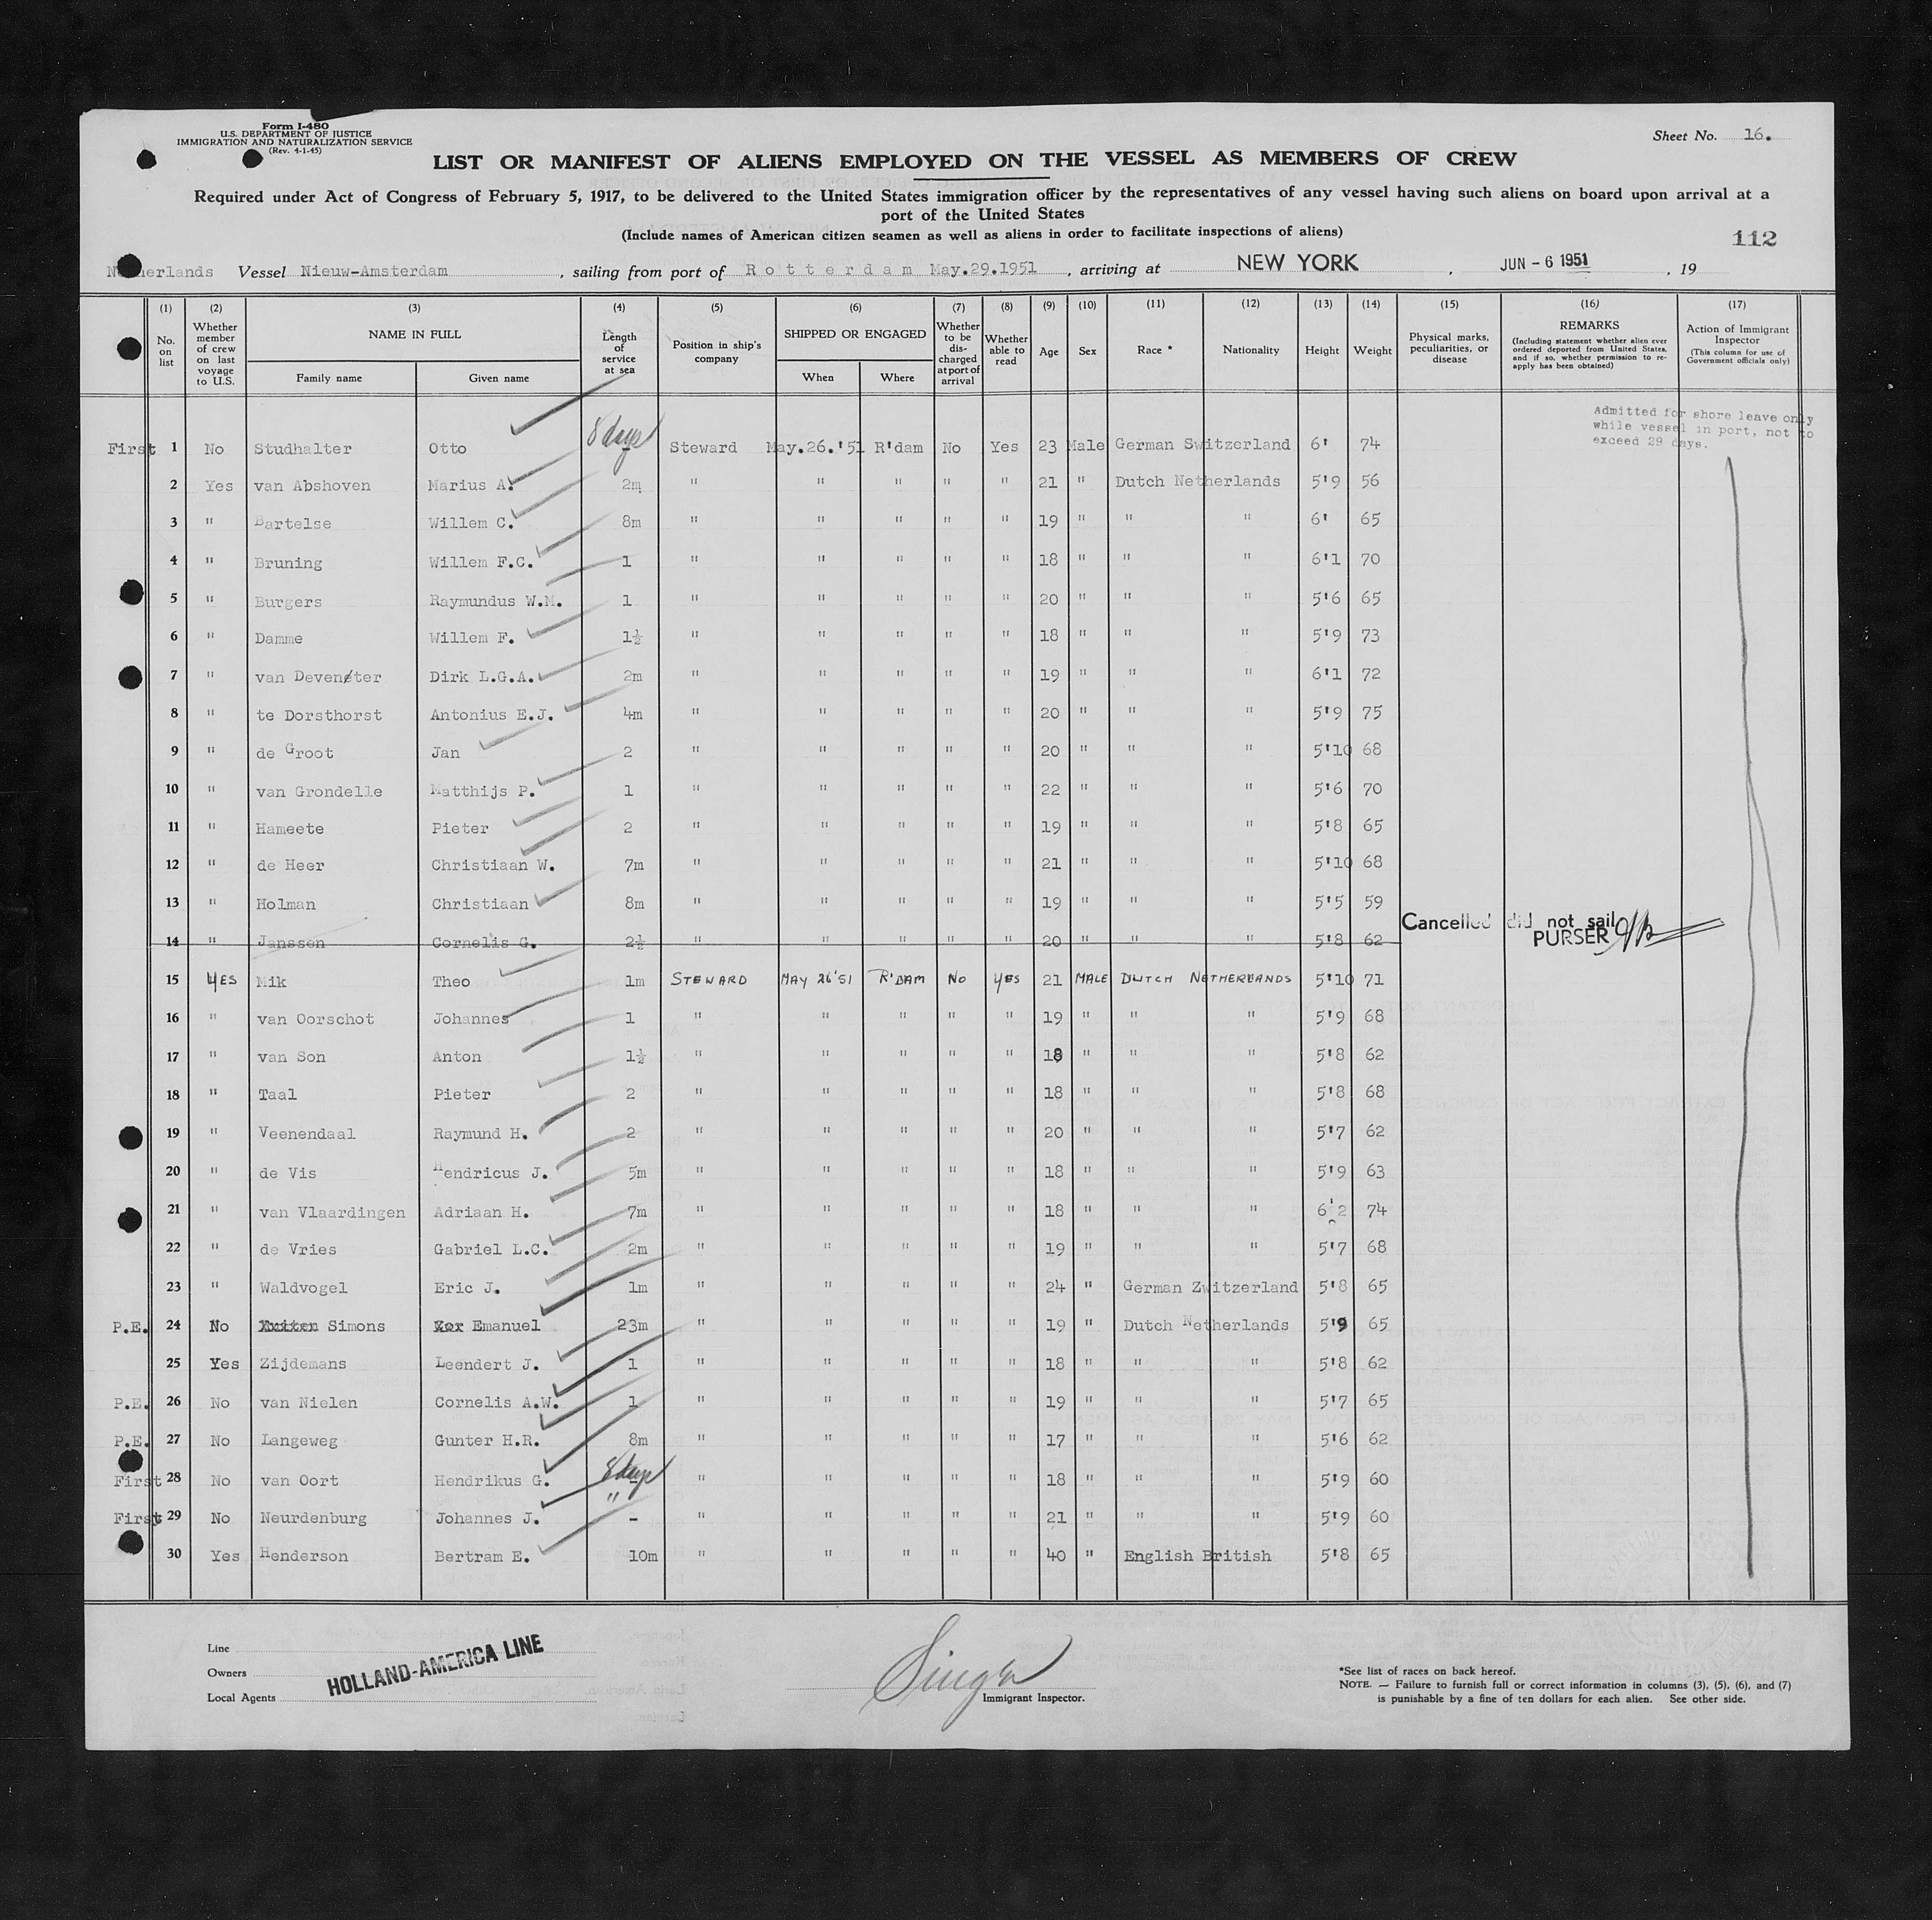 Form I-480
U.S. DEPARTMENT OF JUSTICE
IMMIGRATION AND NATURALIZATION SERVICE
(Rev. 4-1-45)
Sheet No. 16.
LIST OR MANIFEST OF ALIENS EMPLOYED ON THE VESSEL AS MEMBERS OF CREW
Required under Act of Congress of February 5, 1917, to be delivered to the United States immigration officer by the representatives of any vessel having such aliens on board upon arrival at a
port of the United States
(Include names of American citizen seamen as well as aliens in order to facilitate inspections of aliens)
112
Netherlands Vessel Nieuw-Amsterdam, sailing from port of Rotterdam May.29.1951, arriving at NEW YORK, JUN - 6 1951, 19
(1) (2) (3) (4) (5) (6) (7) (8) (9) (10) (11) (12) (13) (14) (15) (16) (17)
No. on list
Whether member of crew on last voyage to U.S.
NAME IN FULL
Family name
Given name
Length of service at sea
Position in ship's company
SHIPPED OR ENGAGED
When
Where
Whether to be discharged at port of arrival
Whether able to read
Age
Sex
Race *
Nationality
Height
Weight
Physical marks, peculiarities, or disease
REMARKS
(Including statement whether alien ever ordered deported from United States, and if so, whether permission to re-apply has been obtained)
Action of Immigrant Inspector
(This column for use of Government officials only)
Admitted for shore leave only
while vessel in port, not to
exceed 29 days.
First 1 No Studhalter Otto 8 days Steward May.26.'51 R'dam No Yes 23 Male German Switzerland 6' 74
2 Yes van Abshoven Marius A. 2m " " " " " 21 " Dutch Netherlands 5'9 56
3 " Bartelse Willem C. 8m " " " " " 19 " " " 6' 65
4 " Bruning Willem F.C. 1 " " " " " 18 " " " 6'1 70
5 " Burgers Raymundus W.M. 1 " " " " " 20 " " " 5'6 65
6 " Damme Willem F. 1½ " " " " " 18 " " " 5'9 73
7 " van Deventer Dirk L.G.A. 2m " " " " " 19 " " " 6'1 72
8 " te Dorsthorst Antonius E.J. 4m " " " " " 20 " " " 5'9 75
9 " de Groot Jan 2 " " " " " 20 " " " 5'10 68
10 " van Grondelle Matthijs P. 1 " " " " " 22 " " " 5'6 70
11 " Hameete Pieter 2 " " " " " 19 " " " 5'8 65
12 " de Heer Christiaan W. 7m " " " " " 21 " " " 5'10 68
13 " Holman Christiaan 8m " " " " " 19 " " " 5'5 59
Cancelled did not sail
PURSER
14 " Janssen Cornelis G. 2½ " " " " " 20 " " " 5'8 62
15 YES Mik Theo 1m STEWARD MAY 26'51 R'DAM No YES 21 MALE DUTCH NETHERLANDS 5'10 71
16 " van Oorschot Johannes 1 " " " " " 19 " " " 5'9 68
17 " van Son Anton 1½ " " " " " 18 " " " 5'8 62
18 " Taal Pieter 2 " " " " " 18 " " " 5'8 68
19 " Veenendaal Raymund H. 2 " " " " " 20 " " " 5'7 62
20 " de Vis Hendricus J. 5m " " " " " 18 " " " 5'9 63
21 " van Vlaardingen Adriaan H. 7m " " " " " 18 " " " 6'2 74
22 " de Vries Gabriel L.C. 2m " " " " " 19 " " " 5'7 68
23 " Waldvogel Eric J. 1m " " " " " 24 " German Zwitzerland 5'8 65
P.E. 24 No Simons Emanuel 23m " " " " " 19 " Dutch Netherlands 5'9 65
25 Yes Zijdemans Leendert J. 1 " " " " " 18 " " " 5'8 62
P.E. 26 No van Nielen Cornelis A.W. 1 " " " " " 19 " " " 5'7 65
P.E. 27 No Langeweg Gunter H.R. 8m " " " " " 17 " " " 5'6 62
First 28 No van Oort Hendrikus G. 8 days " " " " " 18 " " " 5'9 60
First 29 No Neurdenburg Johannes J. " - " " " " " 21 " " " 5'9 60
30 Yes Henderson Bertram E. 10m " " " " " 40 " English British 5'8 65
Line
Owners
Local Agents
HOLLAND-AMERICA LINE
Singer
Immigrant Inspector.
*See list of races on back hereof.
NOTE. — Failure to furnish full or correct information in columns (3), (5), (6), and (7)
is punishable by a fine of ten dollars for each alien. See other side.